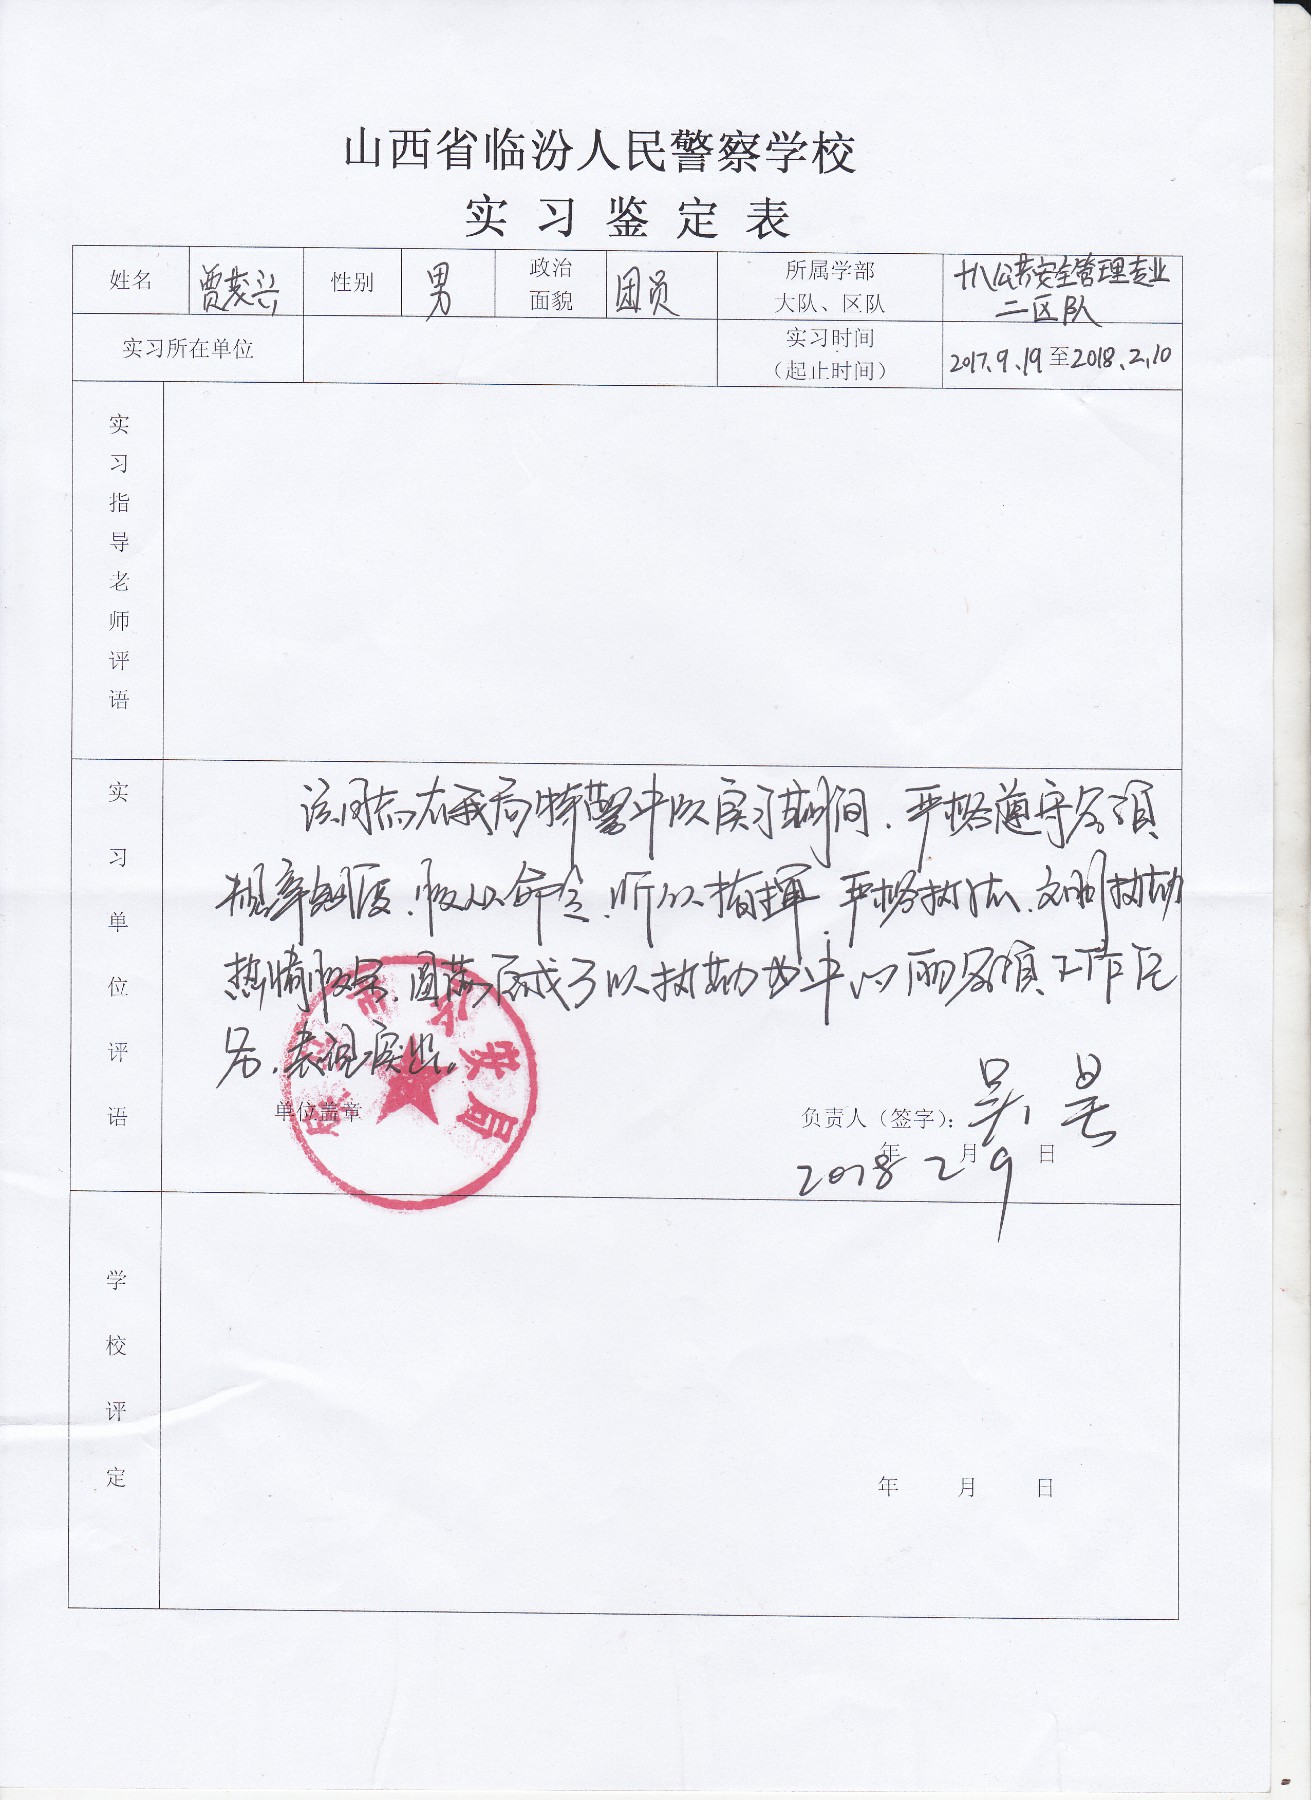 山西省临汾人民警察学校
实习鉴定表
姓名 贾茂兴 性别 男 政治面貌 团员 所属学部大队、区队 十八公共安全管理专业
二区队
实习所在单位 实习时间
(起止时间) 2017.9.19至2018.2.10
实习指导老师评语
实习单位评语
该同志在我局特警中队实习期间,严格遵守各项
规章制度,服从命令,听从指挥,严格执法,文明执勤
热情服务,圆满完成了以执勤为中心的各项工作任
务,表现突出。
市公安局
单位盖章
负责人(签字):吴
年 月 日
2018 2 9
学校评定
年 月 日